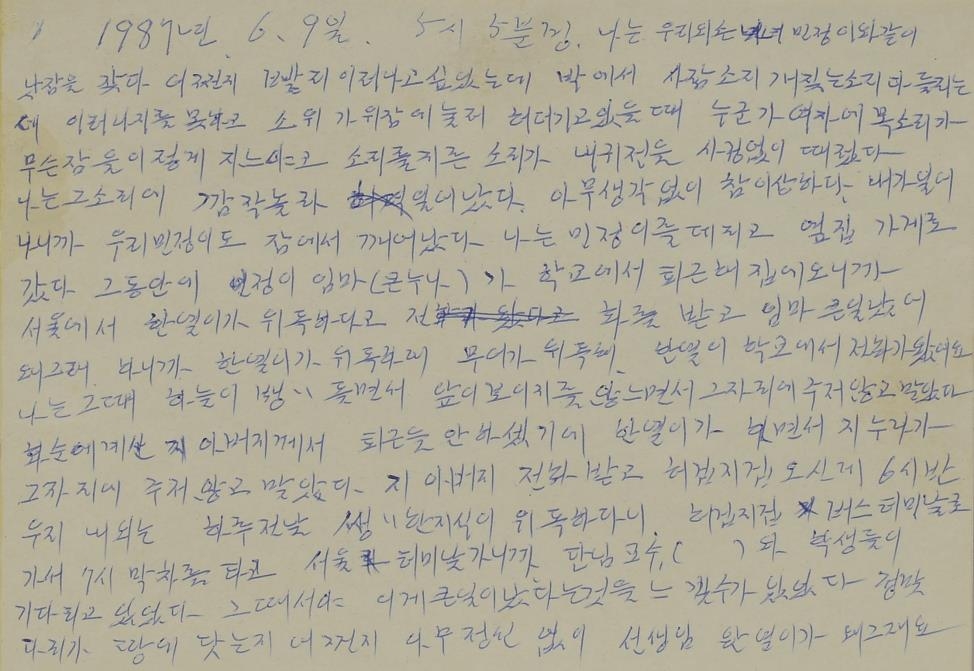 1987년. 6. 9일. 5시 5분경. 나는 우리외손녀 민정이와같이
낮잠을 잤다 어쩐지 이러나고싶었는데 밖에서 사람소리 개짖는소리 다 들리는
데 이러나지를 못하고 소위 가위잠에눌려 허더기고있을때 누군가 여자에 목소리가
무슨잠을이렇게 자느냐고 소리를지른 소리가 내귀전을 사정없이 때렸다
나는그소리에 깜작놀라 일어났다. 아무생각없이 참이상하다. 내가일어
나니까 우리민정이도 잠에서 깨어났다 나는 민정이를데리고 옆집 가게로
갔다 그동안에 민정이 엄마(큰누나)가 학교에서 퇴근해 집에오니까
서울에서 한열이가 위독하다고 전화를 받고 엄마 큰일났어
왜그래 하니까 한열이가 위독하대 무어가 위독해 한열이 학교에서 전화가왔어요
나는그때 하늘이 뺑〃 돌면서 앞이보이지를 않느면서 그자리에주저앉고말았다
화순에계신 아버지께서 퇴근을 안하셨기에 한열이가 하면서 지누나가
그자리에 주저앉고 말았다. 지 아버지 전화받고 허겁지겁 오신게 6시반
우리 내외는 하루전날 쌩〃한자식이 위독하다니 허겁지겁 버스터미날로
가서 7시 막차를 타고 서울 터미날가니까 담님교수( )와 학생들이
기다리고 있었다 그때서야 이게큰일이났다는것을 느낄수가 있었다 정말
다리가 땅에 닿는지 어쩐지 아무정신 없이 선생님 한열이가 왜그래요